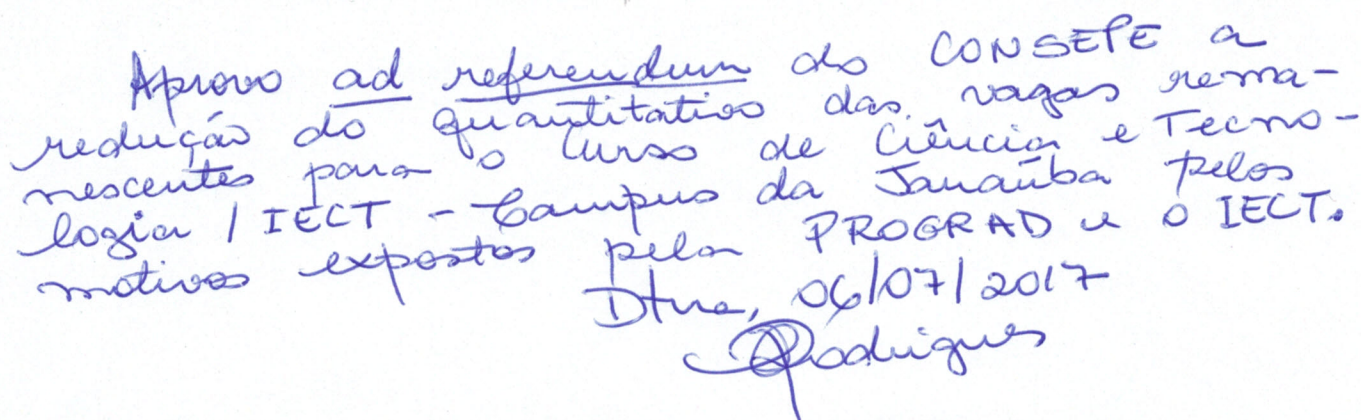 Aprovo ad referendum do CONSEPE a
redução do quantitativo das vagas rema-
nescentes para o Curso de Ciência e Tecno-
logia / IECT - Campus da Janaúba pelos
motivos expostos pela PROGRAD e o IECT.
Dtna, 06/07/2017
Rodrigues